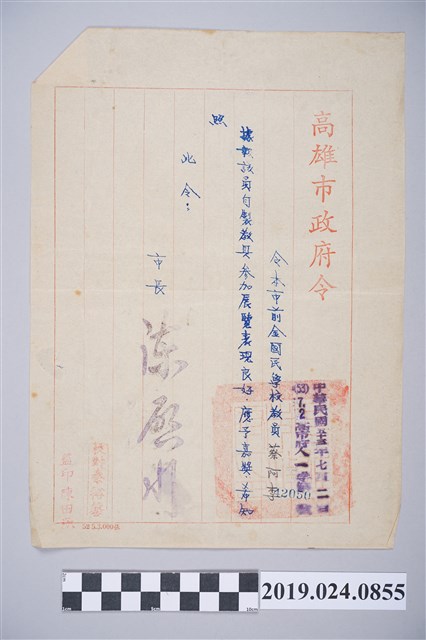 高雄市政府令
中華民國五十五年七月二日
(55)7.2高市府人一字第
號
52050
令本市前金國民學校教員蔡阿李
據報該員自製教具參加展覽表現良好應予嘉獎希知
照
此令：
市長
陳啓川
監印陳田
52.5.5.000張
2019.024.0855